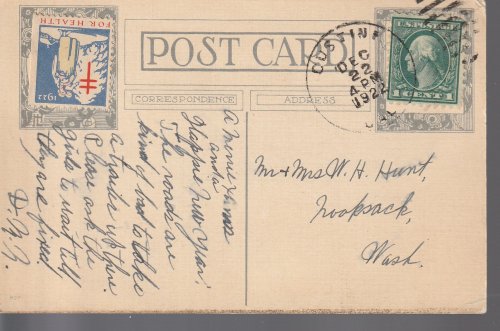 POST CARD
CORRESPONDENCE
ADDRESS
FOR HEALTH
1922
CUSTIN
DEC
22
4 PM
1922
U.S. POSTAGE
1 CENT 1
A Merrie Xmas
and a
Happie New Year.
The roads are
kind of bad to take
a trailer up there.
Please ask the
girls to wait till
they are fixed.
Mr & Mrs W. H. Hunt,
Nooksack,
Wash.